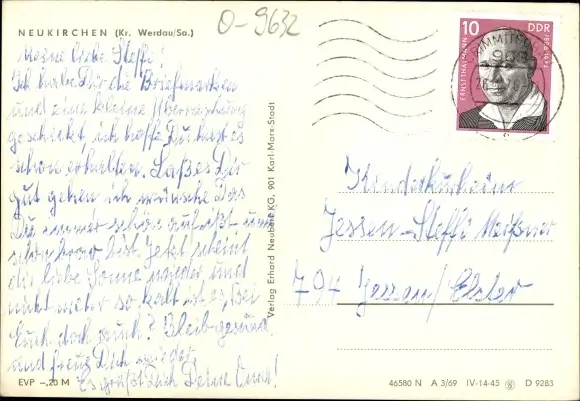 NEUKIRCHEN (Kr. Werdau/Sa.)
0-9632
Meine liebe Steffi!
Ich habe Dir die Briefmarken
und eine kleine Überraschung
geschickt, ich hoffe Du hast es
schon erhalten. Laß es Dir
gut gehen ich wünsche Das
Du immer schön aufißt und
schön brav bist. Jetzt scheint
die liebe Sonne wieder und
nicht mehr so kalt ist es, Bei
Euch doch auch? Bleib gesund
und freue Dich wieder
Es grüßt Dich Deine Oma!
EVP –,20 M
Verlag Erhard Neubert KG, 901 Karl-Marx-Stadt
10 DDR
ERNST THÄLMANN
Kinderkurheim
Jessen-Steffi Meißner
797 Jessen/Elster
46580 N A 3/69 IV-14-45 D 9283